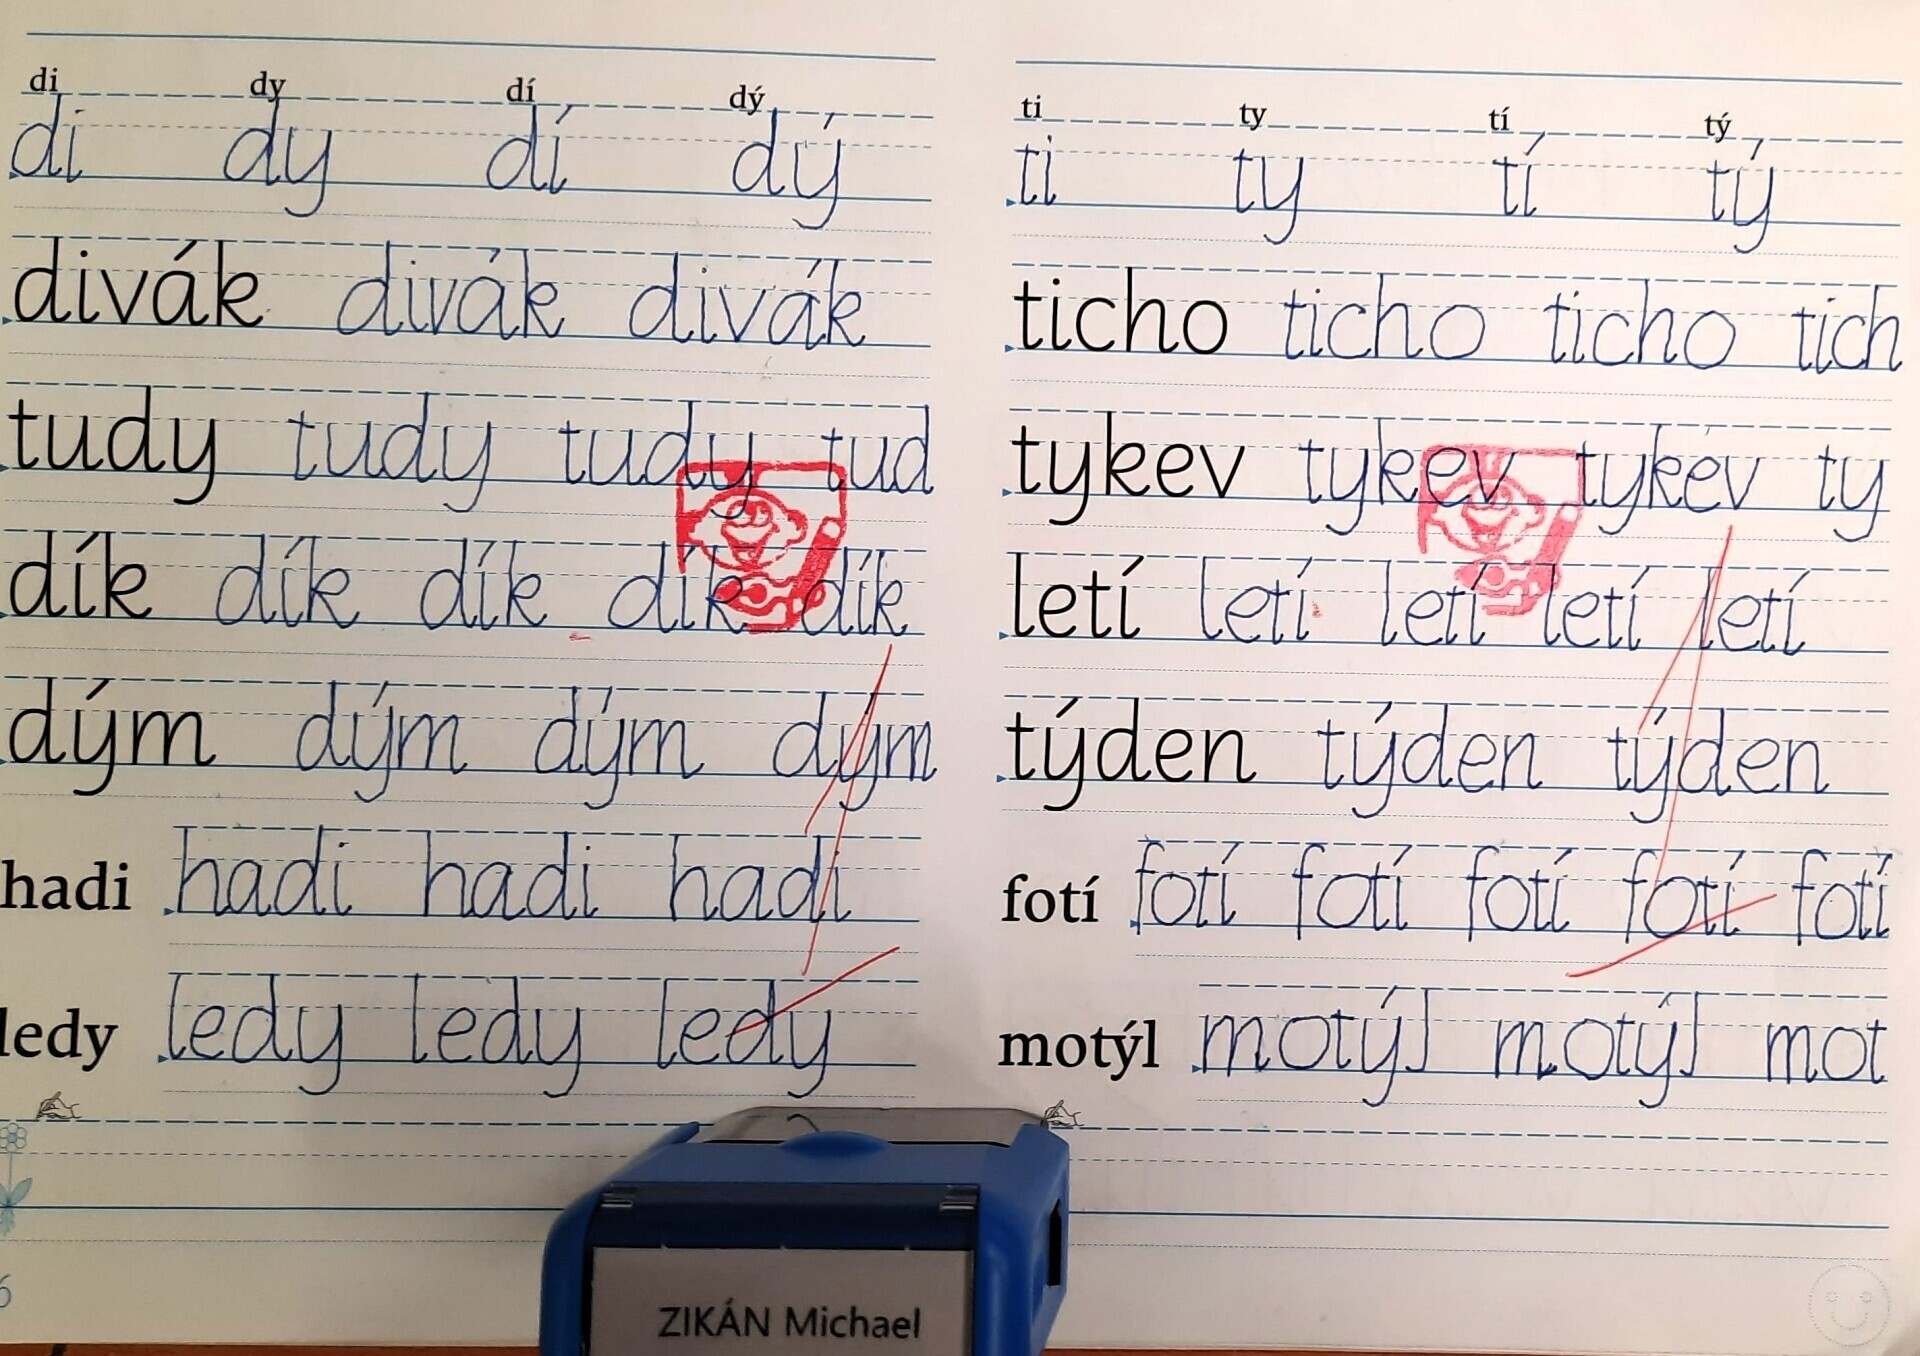 di dy dí dý
di dy dí dý
divák divák divák
tudy tudy tudy tud
dík dík dík dík dík
dým dým dým dým
hadi hadi hadi hadi
ledy ledy ledy ledy
6
ti ty tí tý
ti ty tí tý
ticho ticho ticho tich
tykev tykev tykev ty
letí letí letí letí letí
týden týden týden
fotí fotí fotí fotí fotí fotí
motýl motýl motýl mot
ZIKÁN Michael